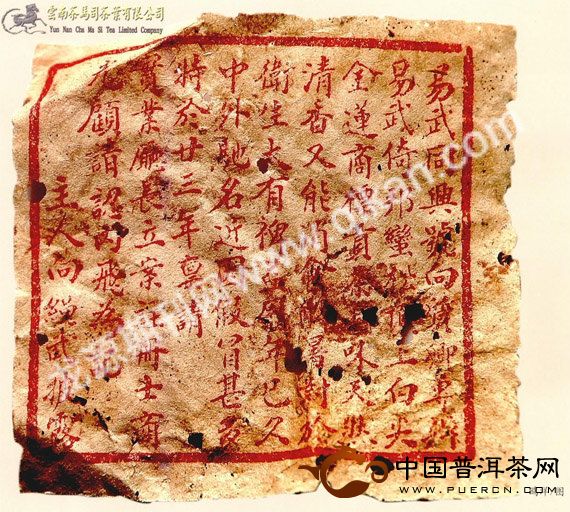 雲南茶馬司茶業有限公司
Yun Nan Cha Ma Si Tea Limited Company
易武同興號向質卿
易武倚邦蠻松頂上白尖
金蓮商標貢茶味天然
清香又能消食解暑對於
衛生大有裨益歷年已久
中外馳名近有假冒甚多
特於廿三年稟請
實業廳長立案註冊士商
光顧請認內飛為
主人向繩武披露
www.qikan.com
中国普洱茶网
WWW.PUERCN.COM